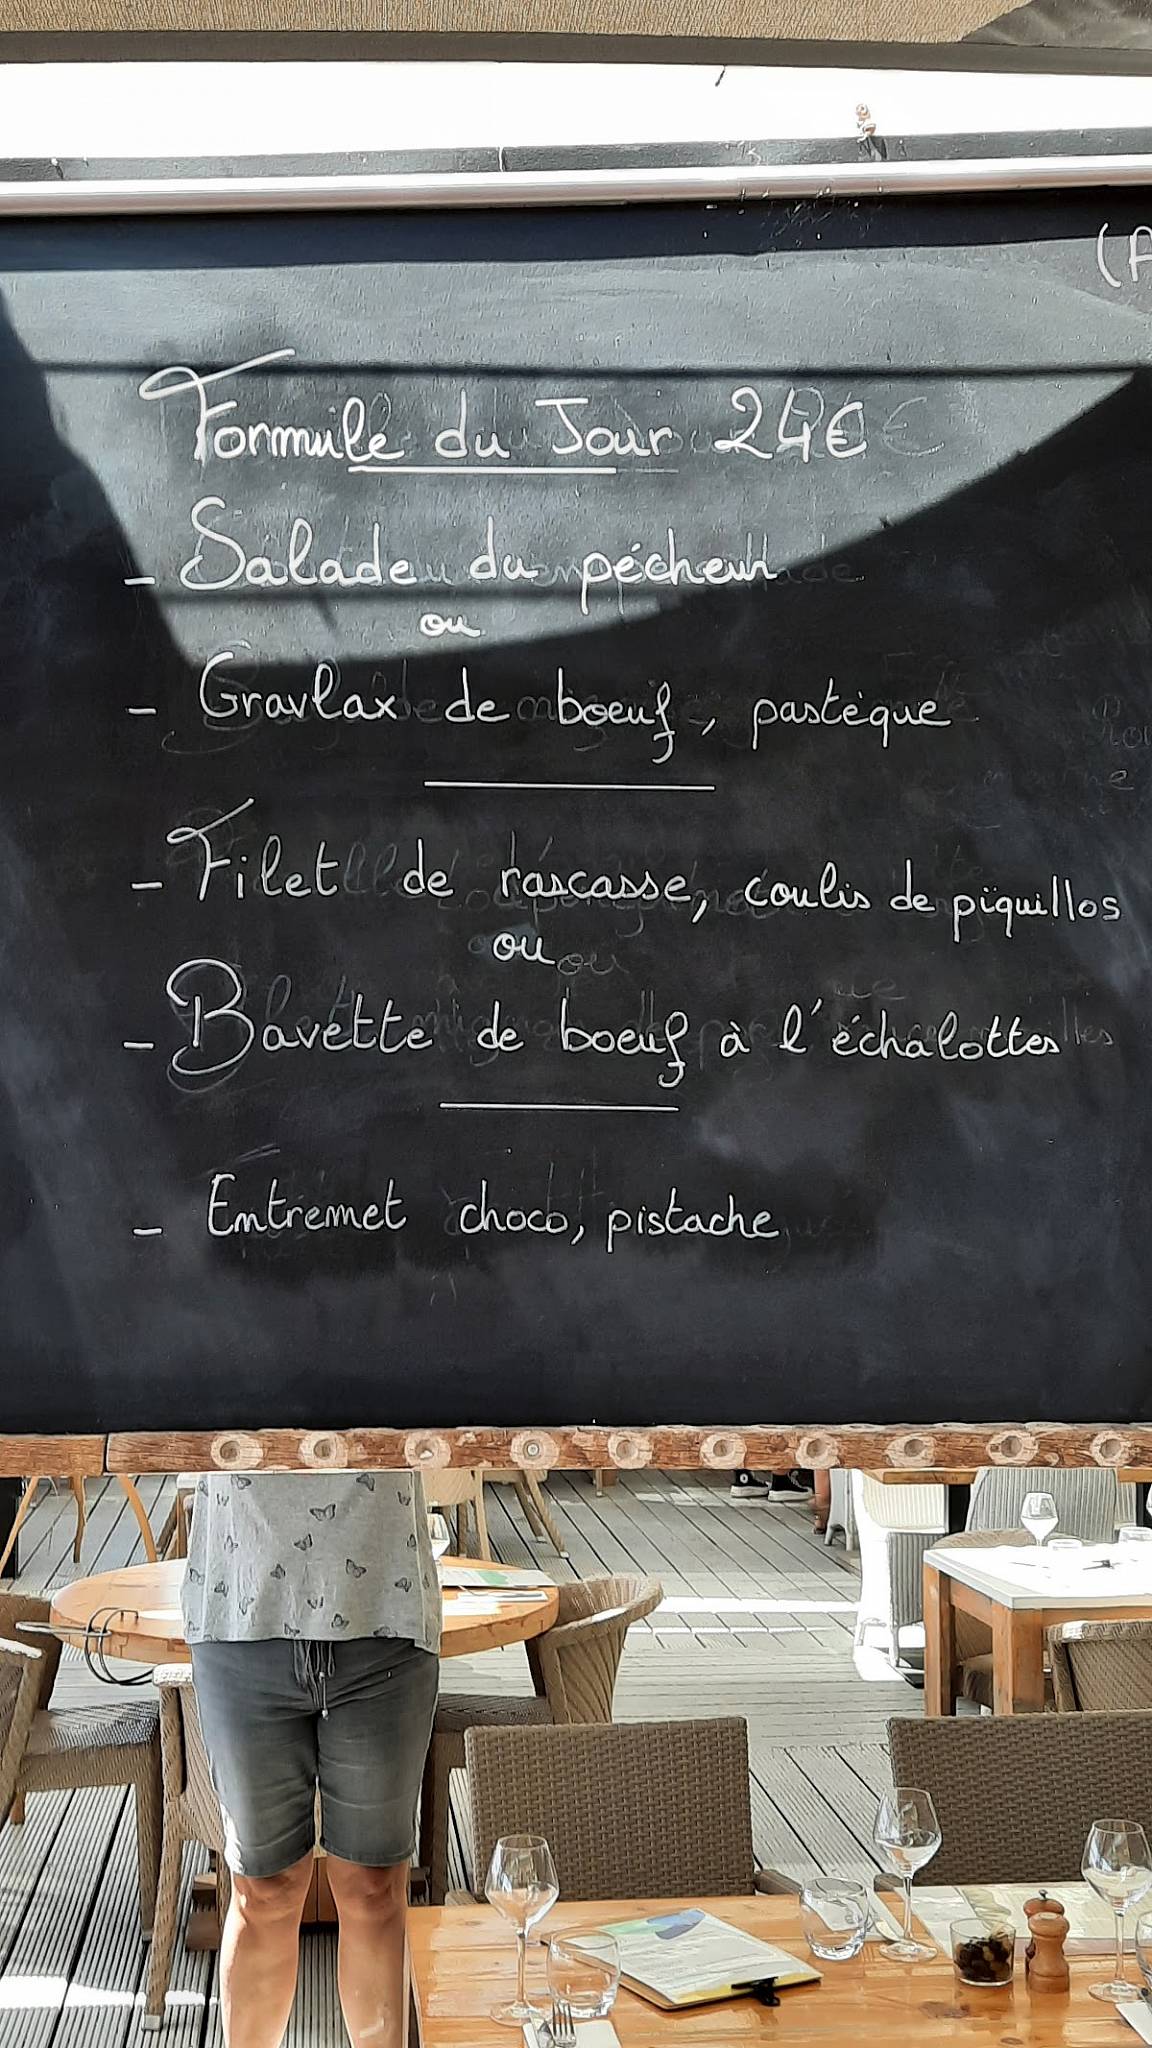 (A
Formule du Jour 24€
- Salade du pécheur
ou
- Gravlax de boeuf, pastèque
- Filet de rascasse, coulis de piquillos
ou
- Bavette de boeuf à l'échalottes
- Entremet choco, pistache